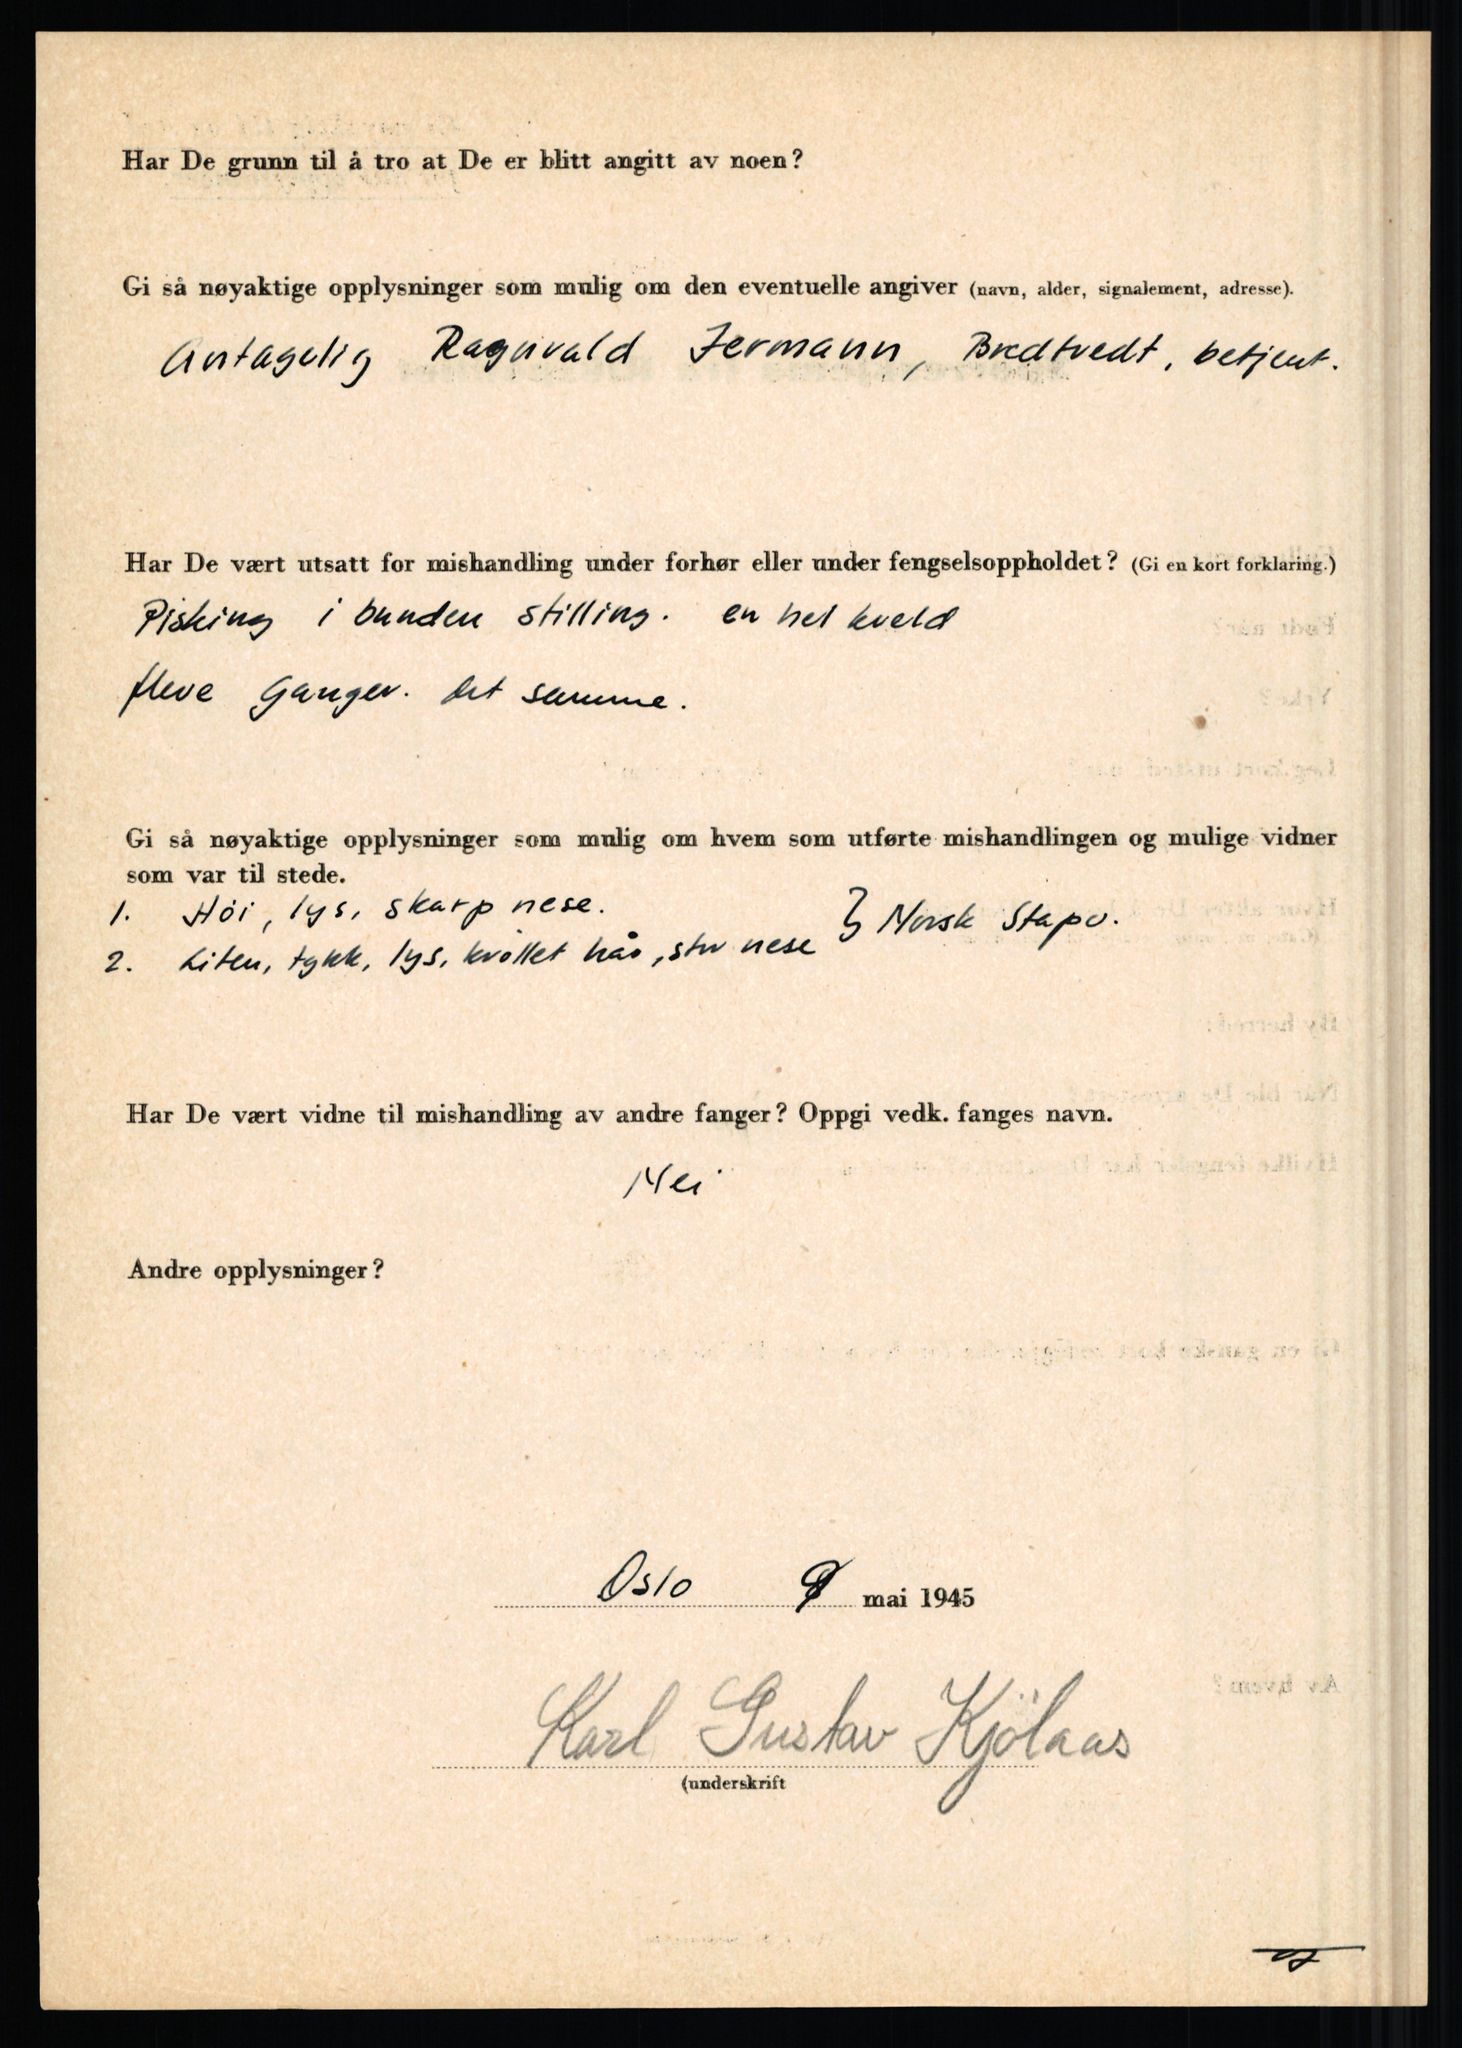 Har De grunn til å tro at De er blitt angitt av noen?
Gi så nøyaktige opplysninger som mulig om den eventuelle angiver (navn, alder, signalement, adresse).
Antagelig Ragnvald Jermann, Bredtvedt, betjent.
Har De vært utsatt for mishandling under forhør eller under fengselsoppholdet? (Gi en kort forklaring.)
Pisking i bunden stilling. en hel kveld
flere Ganger. det samme.
Gi så nøyaktige opplysninger som mulig om hvem som utførte mishandlingen og mulige vidner
som var til stede.
1. Höi, lys, skarp nese.
2. Liten, tykk, lys, kröllet hår, stor nese } Norsk Stapo.
Har De vært vidne til mishandling av andre fanger? Oppgi vedk. fanges navn.
Nei
Andre opplysninger?
Oslo mai 1945
Karl Gustav Kjölaas
(underskrift